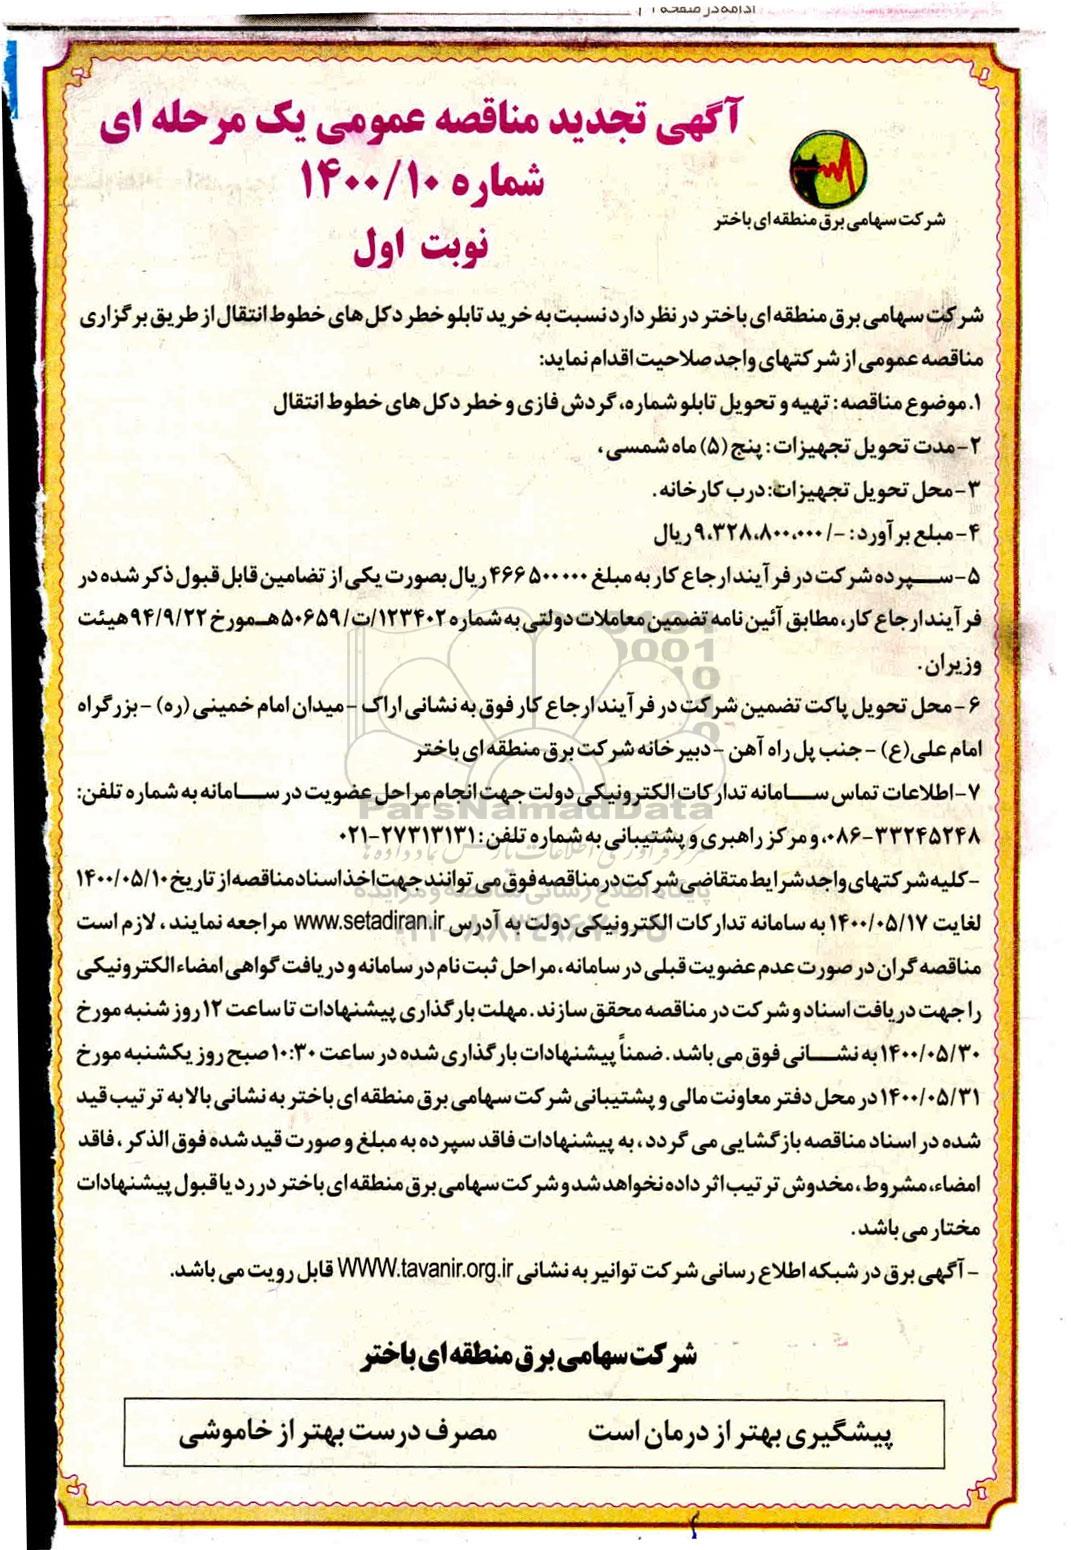 ادامه در صفحه
آگهی تجدید مناقصه عمومی یک مرحله ای
شماره ۱۴۰۰/۱۰
نوبت اول
شرکت سهامی برق منطقه ای باختر
شرکت سهامی برق منطقه ای باختر در نظر دارد نسبت به خرید تابلو خطر دکل های خطوط انتقال از طریق برگزاری
مناقصه عمومی از شرکتهای واجد صلاحیت اقدام نماید:
۱.موضوع مناقصه: تهیه و تحویل تابلو شماره، گردش فازی و خطر دکل های خطوط انتقال
۲-مدت تحویل تجهیزات: پنج (۵) ماه شمسی،
۳-محل تحویل تجهیزات: درب کارخانه.
۴-مبلغ برآورد: -/۹،۳۲۸،۸۰۰،۰۰۰ ریال
۵-سپرده شرکت در فرآیند ارجاع کار به مبلغ ۴۶۶۵۰۰۰۰۰ ریال بصورت یکی از تضامین قابل قبول ذکر شده در
فرآیند ارجاع کار، مطابق آئین نامه تضمین معاملات دولتی به شماره ۱۲۳۴۰۲/ت/۵۰۶۵۹هـ مورخ ۹۴/۹/۲۲ هیئت
وزیران.
۶-محل تحویل پاکت تضمین شرکت در فرآیند ارجاع کار فوق به نشانی اراک -میدان امام خمینی (ره) -بزرگراه
امام علی(ع) -جنب پل راه آهن -دبیرخانه شرکت برق منطقه ای باختر
۷-اطلاعات تماس سامانه تدارکات الکترونیکی دولت جهت انجام مراحل عضویت در سامانه به شماره تلفن:
۰۸۶-۳۳۲۴۵۲۴۸، و مرکز راهبری و پشتیبانی به شماره تلفن: ۰۲۱-۲۷۳۱۳۱۳۱
-کلیه شرکتهای واجد شرایط متقاضی شرکت در مناقصه فوق می توانند جهت اخذ اسناد مناقصه از تاریخ ۱۴۰۰/۰۵/۱۰
لغایت ۱۴۰۰/۰۵/۱۷ به سامانه تدارکات الکترونیکی دولت به آدرس www.setadiran.ir مراجعه نمایند، لازم است
مناقصه گران در صورت عدم عضویت قبلی در سامانه، مراحل ثبت نام در سامانه و دریافت گواهی امضاء الکترونیکی
را جهت دریافت اسناد و شرکت در مناقصه محقق سازند. مهلت بارگذاری پیشنهادات تا ساعت ۱۲ روز شنبه مورخ
۱۴۰۰/۰۵/۳۰ به نشانی فوق می باشد. ضمناً پیشنهادات بارگذاری شده در ساعت ۱۰:۳۰ صبح روز یکشنبه مورخ
۱۴۰۰/۰۵/۳۱ در محل دفتر معاونت مالی و پشتیبانی شرکت سهامی برق منطقه ای باختر به نشانی بالا به ترتیب قید
شده در اسناد مناقصه بازگشایی می گردد، به پیشنهادات فاقد سپرده به مبلغ و صورت قید شده فوق الذکر، فاقد
امضاء، مشروط، مخدوش ترتیب اثر داده نخواهد شد و شرکت سهامی برق منطقه ای باختر در رد یا قبول پیشنهادات
مختار می باشد.
-آگهی برق در شبکه اطلاع رسانی شرکت توانیر به نشانی WWW.tavanir.org.ir قابل رویت می باشد.
شرکت سهامی برق منطقه ای باختر
پیشگیری بهتر از درمان است مصرف درست بهتر از خاموشی
ParsNamadData
پایگاه اطلاع رسانی مناقصه و مزایده